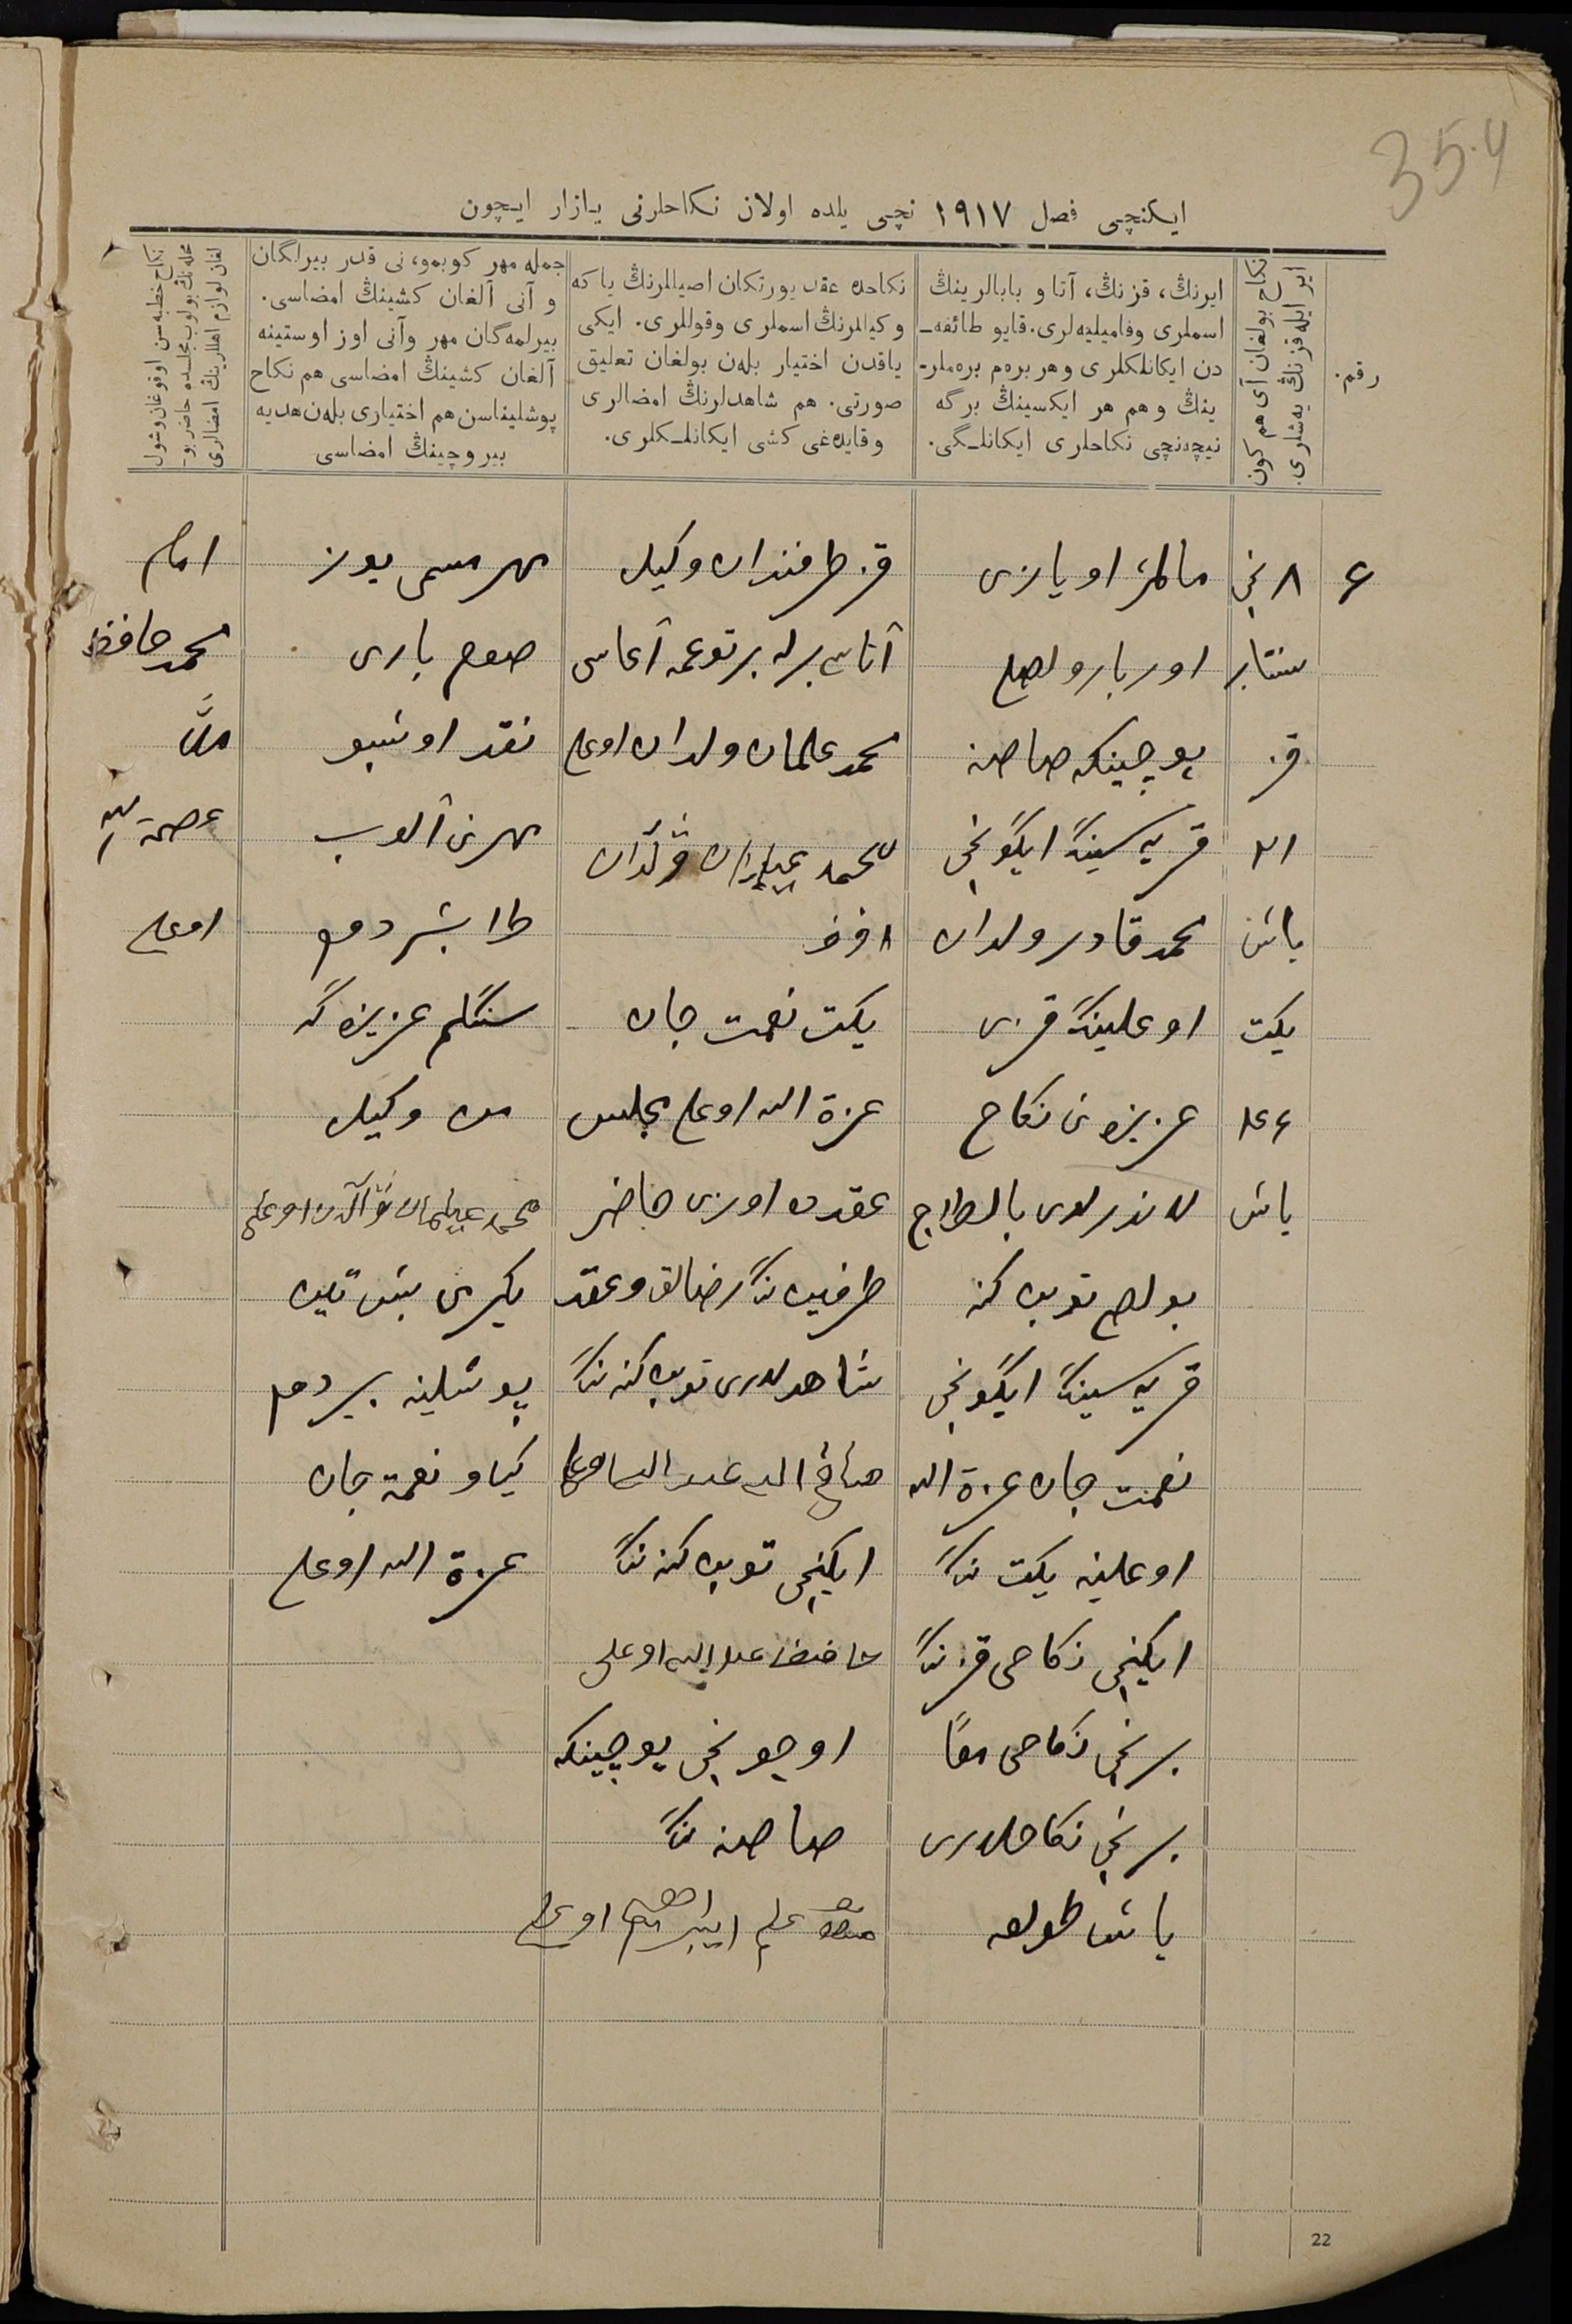 35.4
ایکنچی فصل ۱۹۱۷ نچی یلده اولان نکاحلرنی یازار ایچون
رقم.
نکاح بولغان آی هم کون
ایر ایله قزنڭ یه‌شلری.
ایرنڭ، قزنڭ، آتا و بابالرینڭ
اسملری وفامیلیه‌لری. قایو طائفه‌ـ
دن ایکانلکلری وهر بره‌م بره‌ملر-
ینڭ وهم هر ایکسینڭ برگه
نیچه‌نچی نکاحلری ایکانلـگی.
نکاحده عقد یورتکان اصیللرنڭ یا که
وکیللرنڭ اسملری وقوللری. ایکی
یاقدن اختیار بله‌ن بولغان تعلیق
صورتی. هم شاهدلرنڭ امضالری
وقایده‌غی کشی ایکانلـکلری.
جمله مهر کوبمو، نی قدر بیرلگان
و آنی آلغان کشینڭ امضاسی.
بیرلمه‌گان مهر وآنی اوز اوستینه
آلغان کشینڭ امضاسی هم نکاح
پوشلیناسن هم اختیاری بله‌ن هدیه
بیروچینڭ امضاسی
نکاح خطبه‌سن اوقوغان وشول
محله‌نڭ بولوب مجلسده حاضر بو-
لغان لوازم اهللرینڭ امضالری
۶
۸ نچی
سنتابر
قز
۲۱
یاش
یکت
۶۴
یاش
مالمز اویازی
اور بار ولص
پوچینکه صاصنه
قریه سینڭ ایگونچی
محمد قادر ولدان
اوغلینڭ قزی
عزیزه نی نکاح
بولص توبن کنه
قریه سینڭ ایگونچی
نعمت جان عزة الله
اوغلینه یکت ننڭ
ایکنچی نکاحی قزننڭ
برنچی نکاحی معًا
برنچی نکاحلری
یاش طولغه
قز طرفندان وکیل
آتاسی برله برتوغمه آغاسی
محمد علمان ولدان اوغلی
یکت نعمت جان
عزة الله اوغلی مجلس
عقدده اوزی حاضر
طرفین ننڭ رضالق وعقد
شاهدلری توبن کنه ننڭ
ایکنچی توبن کنه ننڭ
اوچونچی پوچینکه
صاصنه ننڭ
ابراهیم اوغلی
مهر مسمی یوز
صوم باری
نقد اوشبو
مهرنی آلوب
طابشردم
سنگلم عزیزه گه
من وکیل
یگرمی بش تین
پوشلینه بیردم
کیاو نعمة جان
عزة الله اوغلی
امام
محمد حافظ
ملا
عصمة الله
اوغلی
22